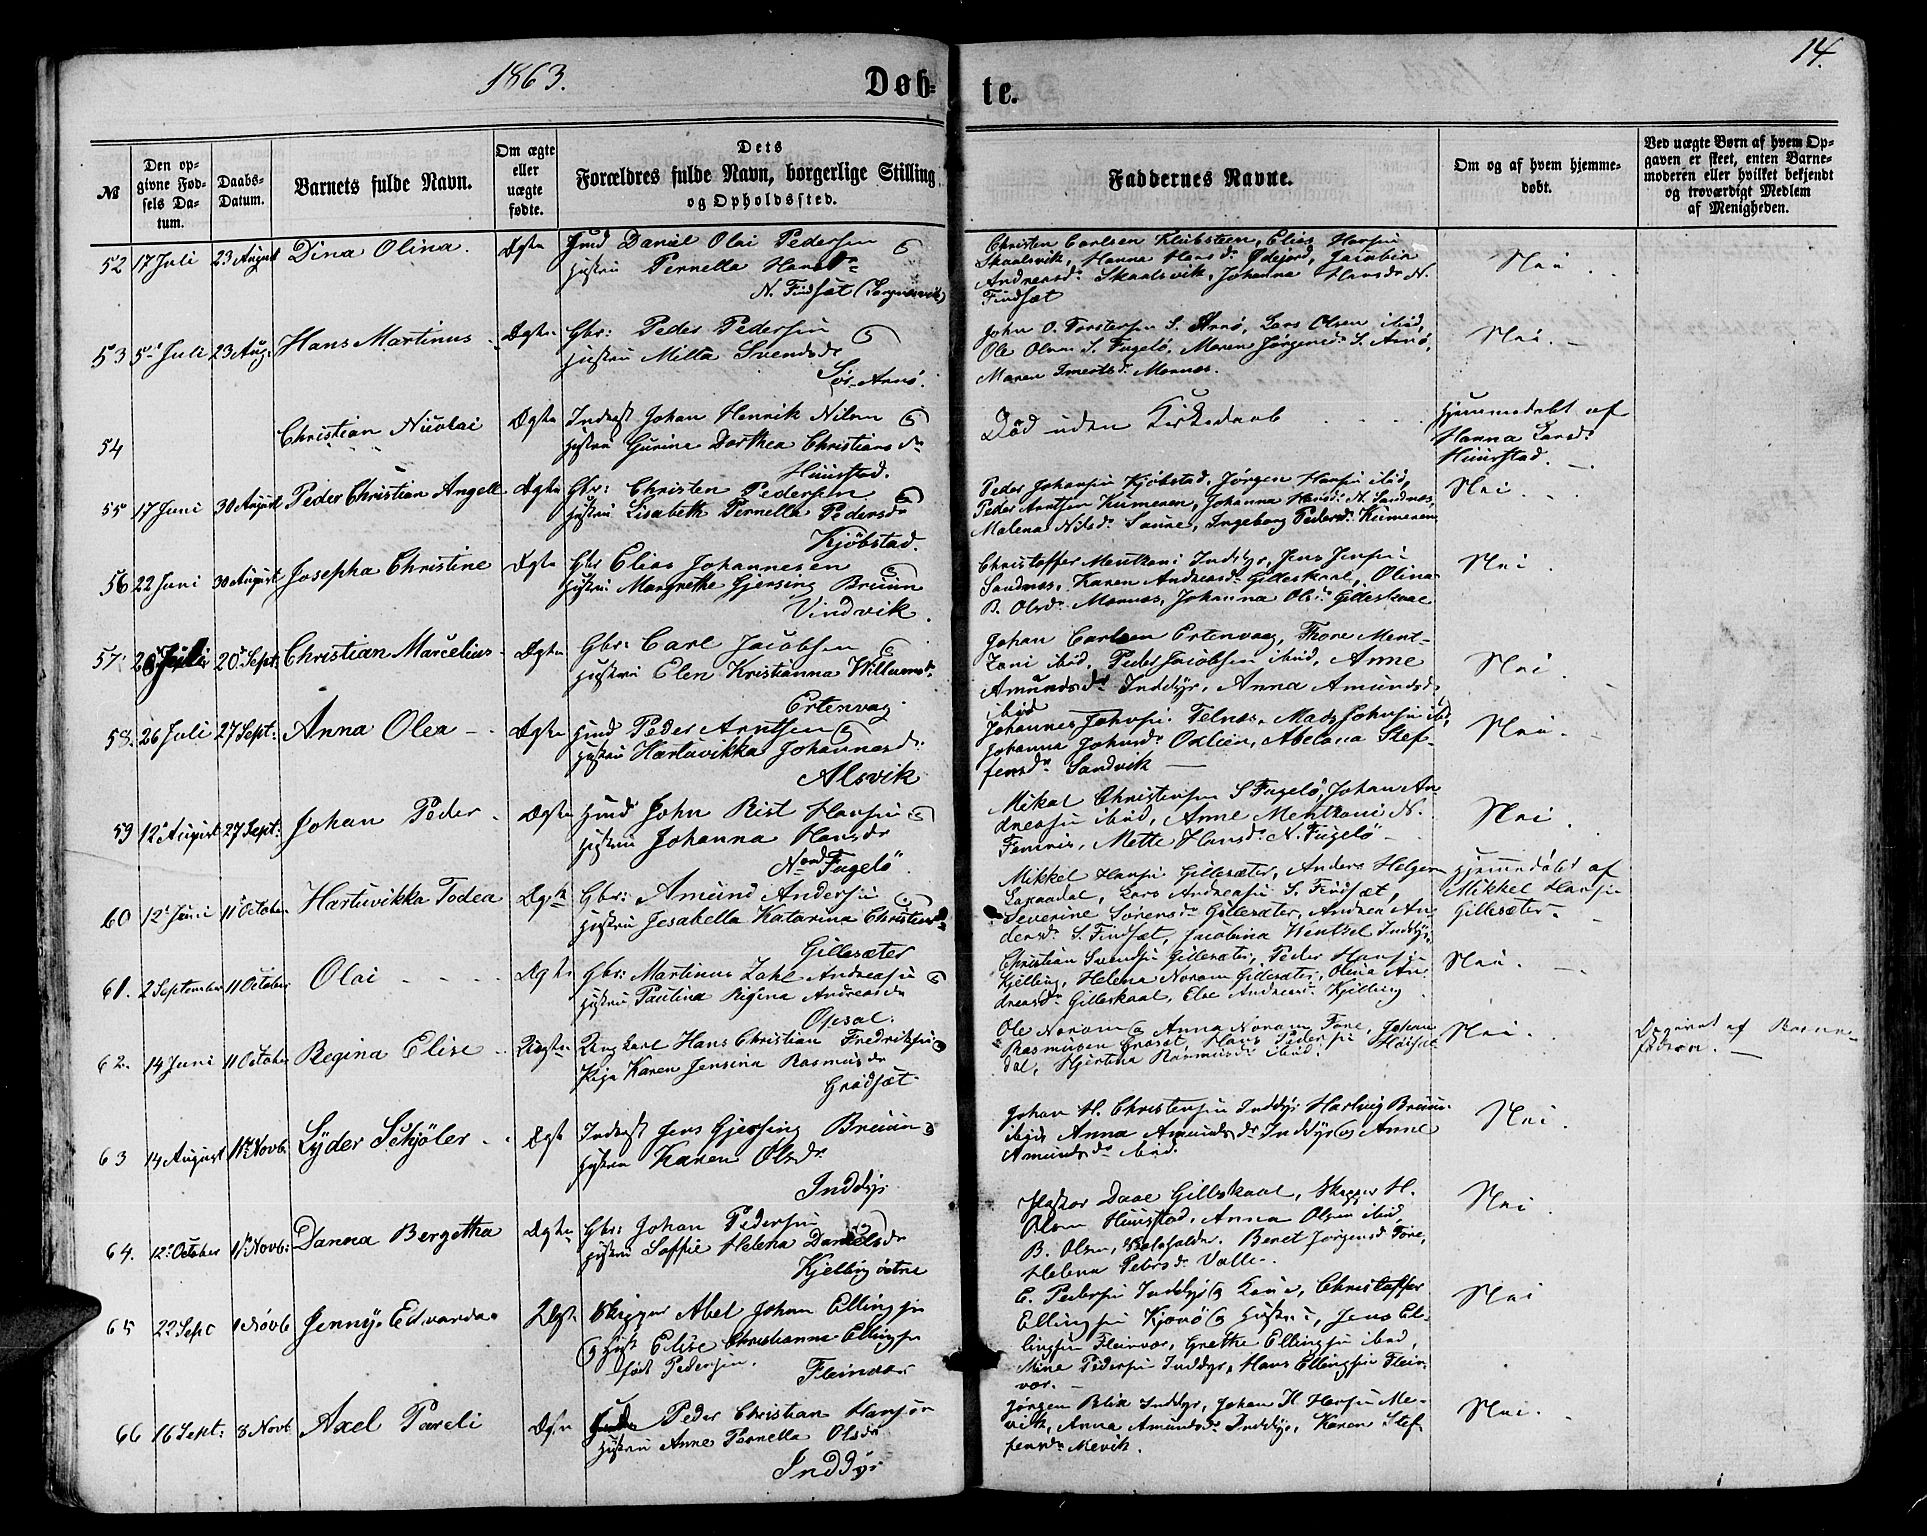 1863.
Døb-
te.
14.
№
Den op-
givne Fød-
sels Da-
tum.
Daabs-
Datum.
Barnets fulde Navn.
Om ægte
eller
uægte
fødte.
Dets
Forældres fulde Navn, borgerlige Stilling
og Opholdssted.
Faddernes Navne.
Om og af hvem hjemme-
døbt.
Ved uægte Børn af hvem Op-
gaven er skeet, enten Barne-
moderen eller hvilket bekjendt
og troværdigt Medlem
af Menigheden.
52 17 Juli 23 August Dina Olina. Ægte Huusm Daniel Olai Pedersen
Hustru Pernella Hansdr
N. Findsæt
Christen Carlsen Klubsteen, Elias Hansen
Skaalsvik, Hanna Hansdr Ødejord, Jacobia
Andreasdr Skaalsvik, Johanna Hansdr N.
Findsæt
Nei
53 5te Juli 23 Aug. Hans Martinus Ægte Gbr: Peder Pedersen
Hustru Milta Svendsdr
Sør-Arnø.
John O. Torstensen S. Arnø, Lars Olsen ibid,
Ole Olsen S. Fugelø, Maren Jørgensdr S. Arnø,
Maren Mornæs.
Nei.
54 Christian Nicolai Ægte Inderst Johan Henrik Nilsen
Hustru Gurina Dorthea Christiansdr
Huustad.
Død uden Kirkedaab
Hjemmedøbt af
Hanna Larsdr
Huustad.
55 17 Juni 30 August Peder Christian Angell Ægte Gbr: Christen Pedersen
Hustru Lisabeth Pernella Pedersdr
Kjøbstad.
Peder Johansen Kjøbstad, Jørgen Hansen ibid,
Peder Arntsen Kumeren, Johanna Hansdr N. Sandnæs,
Malena Nilsdr Saure, Ingeborg Pedersdr Kumeren
Nei.
56 22 Juni 30 August Josepha Christine Ægte Gbr Elias Johannesen
Hustru Margrethe Gjersing Bruun
Vindvik.
Christoffer Mentzoni Inddyr, Jens Jensen
Sandnæs, Karen Andreasdr Gilleskaal, Olina
B. Olsdr Mornæs, Johanna Olsdr Gilleskaal
Nei
57. Juli 20 Sept: Christian Marcelius Ægte Gbr: Carl Jacobsen
Hustru Elen Kristianna Willumsdr
Ertenvag.
Johan Carlsen Ertenvaag, Thore Ment-
zoni ibid, Peder Jacobsen ibid, Anne
Amundsdr Inddyr, Anna Amundsd.
ibid
Nei
58. 26 Juli 27 Sept: Anna Olea Ægte Huusm Peder Arntsen
Hustru Hartuvikka Johannesdr
Alsvik
Johannes Johnsen Telnæs, Mads Johnsen ibd,
Johanna Johnsdr Oxlien, Abelona Stef-
fensdr Sandvik
Nei.
59 12te August 27 Sept: Johan Peder Ægte Huusm John Rist Hansen
Hustru Johanna Hansdr
Nord Fugelø
Mikal Christensen S Fugelø, Johan An-
dreasen ibid, Anne Mentzoni N.
Femris, Mette Hansdr N. Fugelø
Nei
60 12te Juni 11te October Hartuvikka Todea Ægte Gbr: Amund Andersen
Hustru Jesabella Katarina Christensdr
Gillesæter
Mikkel Hansen Gillesæter, Anders Helgesen
Laxaadal, Lars Andreasen S. Findsæt,
Severine Sørensdr Gillesæter, Andrea An-
dersdr S. Findsæt, Jacobina Wentzel Inddyr
Hjemmedøbt af
Mikkel Hansen
Gillesæter.
61. 2 September 11 October Olai Ægte Gbr: Martinus Zahl Andreasen
Hustru Paulina Regina Andreasdr
Opsal.
Christian Svendsen Gillesæter, Peder Hansen
Kjelling, Helena Norum Gillesæter, Olina An-
dreasdr Gilleskaal, Else Andreasdr Kjelling
Nei.
62. 14 Juni 11 October Regina Elise Uægte Ungkarl Hans Christian Fredriksen
Pige Karen Jensina Rasmusdr
Gradsæt
Ole Norum og Anna Norum Fore, Johan
Rasmusen Grasæt, Hans Pedersen
dal, Hjertina Rasmusdr ibid
Nei.
Opgivet af Barne-
faderen.
63 14 August 1ste Novb. Lyder Schjøler Ægte Inderst Jens Gjersing Bruun
Hustru Karen Olsdr
Inddyr
Johan H. Christensen Inddyr Hartvig Bruun
ibid Anna Amundsdr Inddyr og Anne
Amundsdr ibid.
Nei.
64. 12te October 1ste Novb: Danna Bergetha Ægte Gbr: Johan Pedersen
Hustru Soffie Helena Danielsdr
Kjelling østre
Pastor Daae Gilleskaal, Skipper H.
Olsen Huustad, Anna Olsen ibid,
B. Olsen, Beret Jørgensdr Fore,
Helena Pedersdr Valle.
Nei.
65 22 Sept 1 Novb Jenny Edvarda Ægte Skipper Abel Johan Ellingsen
og Hust Elise Christianna Ellingsen
født Pedersen. Fleinvær
C. Pedersen Inddyr og Kone, Christoffer
Ellingsen Kjovø og Hustru, Jens El-
lingsen Fleinvær, Grethe Ellingsen ibid,
Mine Pedersen Inddyr, Hans Ellingsen Flein-
vær.
Nei
66 16 Sept: 8 Novb Axel Pareli Ægte Peder Christian Hansen
Hustru Anne Pernella Olsdr
Inddyr
Jørgen Blix Inddyr, Johan H. Hansen Me-
vik, Anna Amundsdr Inddyr, Karen Stef-
fensdr Mevik.
Nei.